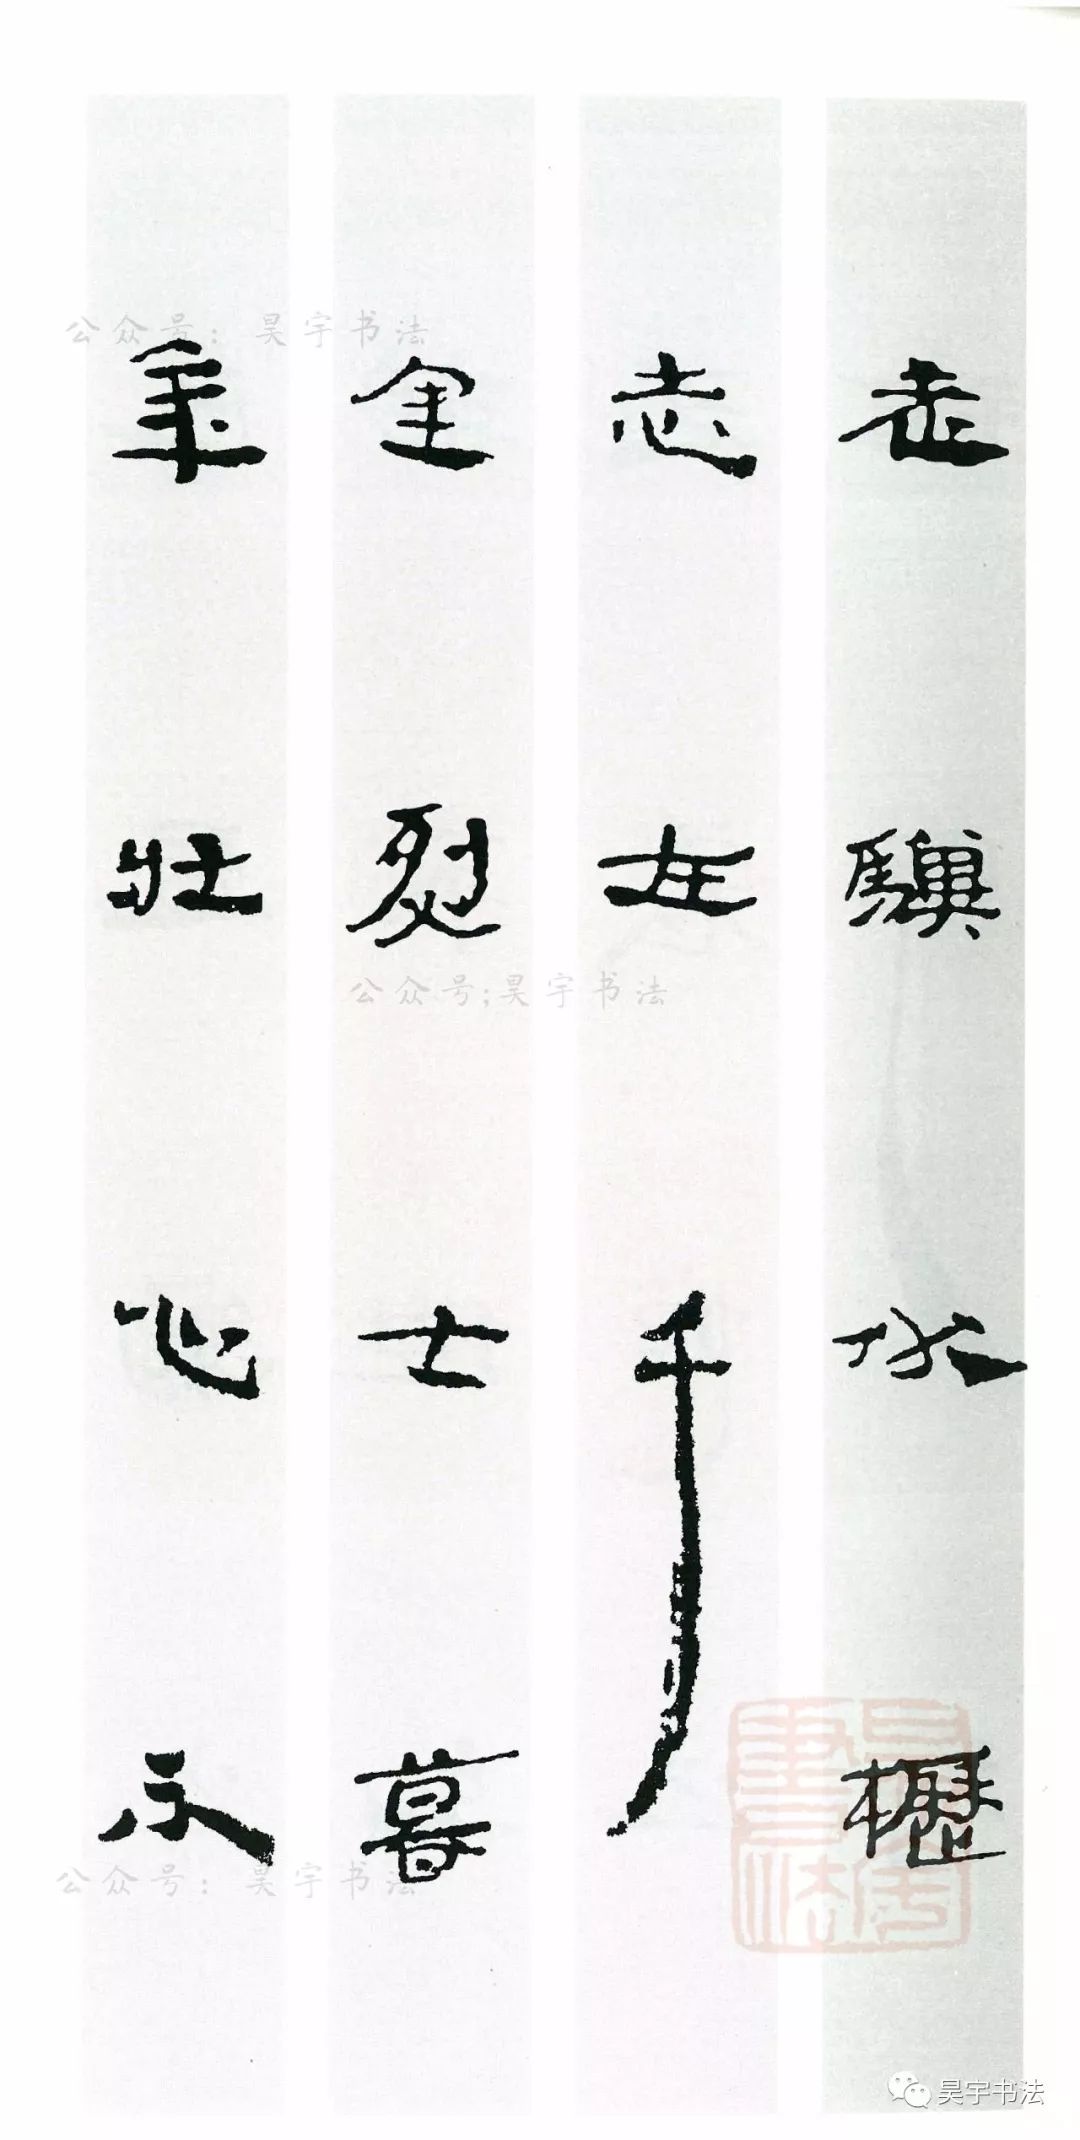 老驥伏櫪
志在千
里烈士暮
年壯心不
公众号：昊宇书法
公众号;昊宇书法
公众号：昊宇书法
昊宇書法
昊宇书法